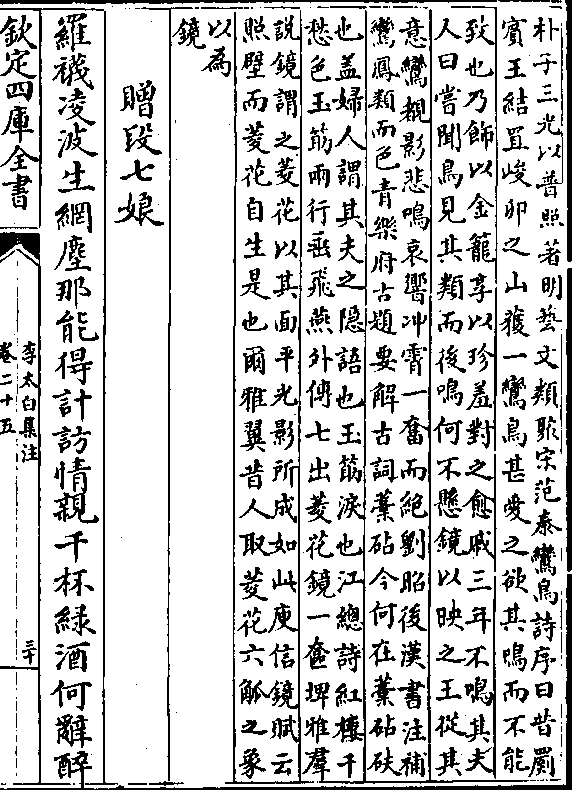 朴子三光以普照著明藝文類聚宋范泰鸞鳥詩序曰昔罽
賓王結罝峻卯之山獲一鸞鳥甚愛之欲其鳴而不能
致也乃飾以金籠享以珍羞對之愈戚三年不鳴其夫
人曰嘗聞鳥見其類而後鳴何不懸鏡以映之王從其
意鸞覩影悲鳴哀響冲霄一奮而絕劉昭後漢書注補
鸞鳳類而色青樂府古題要解古詞藁砧今何在藁砧砆
也盖婦人謂其夫之隠語也玉筯淚也江總詩紅樓千
愁色玉筯兩行垂飛燕外傳七出菱花鏡一奩埤雅羣
說鏡謂之菱花以其面平光影所成如此庾信鏡賦云
照壁而菱花自生是也爾雅翼昔人取菱花六觚之象
以為
鏡
贈段七娘
羅襪凌波生網塵那能得計訪情親千杯緑酒何辭醉
欽定四庫全書
李太白集注
卷二十五
三十